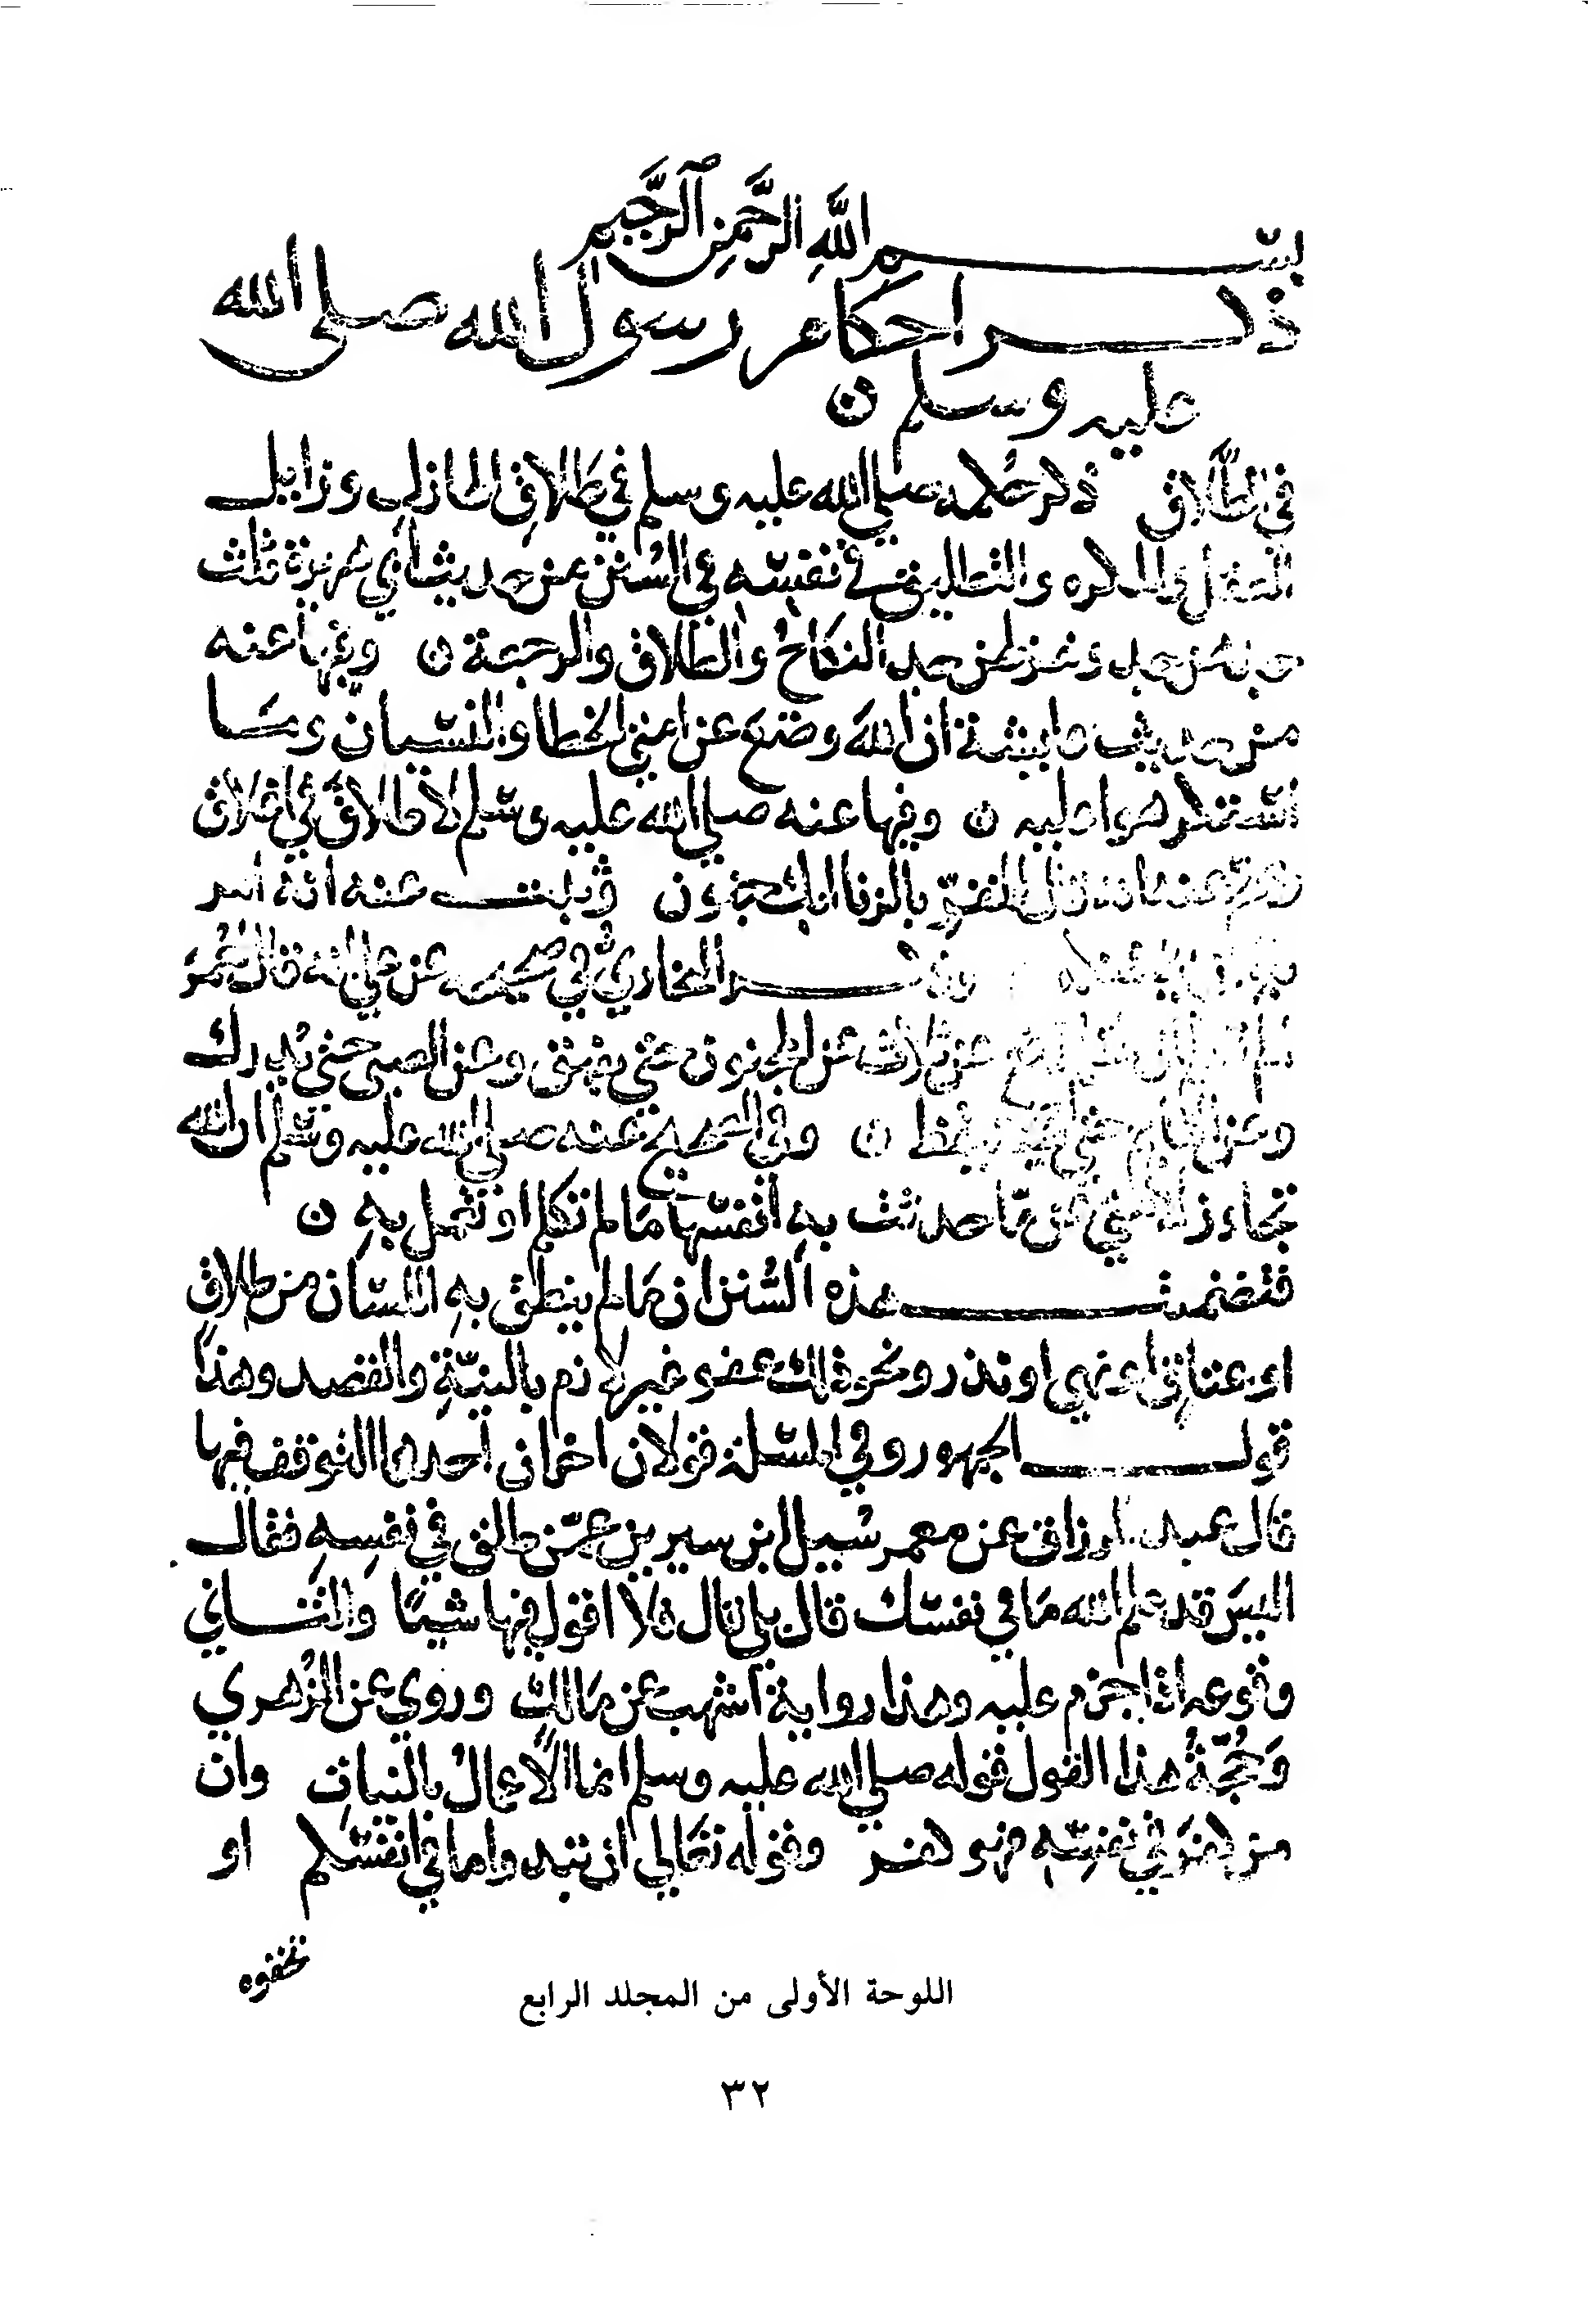 بسم اللهِ الرَّحمنِ الرَّحيم
ذكر احكام رسول الله صلى الله
عليه وسلم ن
في الطلاق ذكر حكمه صلي الله عليه وسلم في طَلاقِ الهازلِ وزايل
العقل والمكره والتطليق في نفسِه في السُنن عن حديث أبي هريرة ثلاث
جدهن جد وهزلهن جد النكاحُ والطلاق والرجعة ن وفيها عنه
من حديث عايشة ان اللهَ وضعَ عن امتي الخطا والنسيان وما
استكرهوا عليه ن وفيها عنه صلي الله عليه وسلم لا طلاقَ في اغلاق
عنه انه قال للمقرّ بالزنا ابك جنون وثبت عنه انه امر
وذكر البخاري في صحيحه عن علي انه قال لعُمرَ
عن ثلاث عن المجنون حتي يفيق وعن الصبي حتي يُدرك
وعن النايم حتي يستيقظ ن وفي الصحيح عنه صلي الله عليه وسلم ان الله
تجاوز لامتي عن مّا حدثت بهِ أنفسَها مَا لم تكلم او تعمل بهِ ن
فتضمنت هذه السُنن ان مَا لم ينطق بهِ اللسَان من طلاقٍ
او عتاقٍ او يمين او نذر ونحو ذلك عفو غير لازم بالنيّةِ والقصد وهذا
قول الجمهور وفي المسئلة قولان اخران أحدهما التوقف فيها
قال عبد الرزاق عن معمر سُيل ابن سيرين عمّن طلق في نفسِهِ فقال
اليسَ قد علم الله مَا في نفسك قال بلي قال فلا اقول فيها شيئًا وَالثاني
وقوعه اذا جزم عليه وهذا رواية أشهب عن مَالك وروي عن الزُهري
وَحُجّةُ هذا القول قوله صلي الله عليه وسلم انما الأعمالُ بالنيات وان
من كفرَ في نفسِهِ فهو كفر وقوله تعَالي ان تبدوا ما في انفسكم او
تخفوه
اللوحة الأولى من المجلد الرابع
٣٢